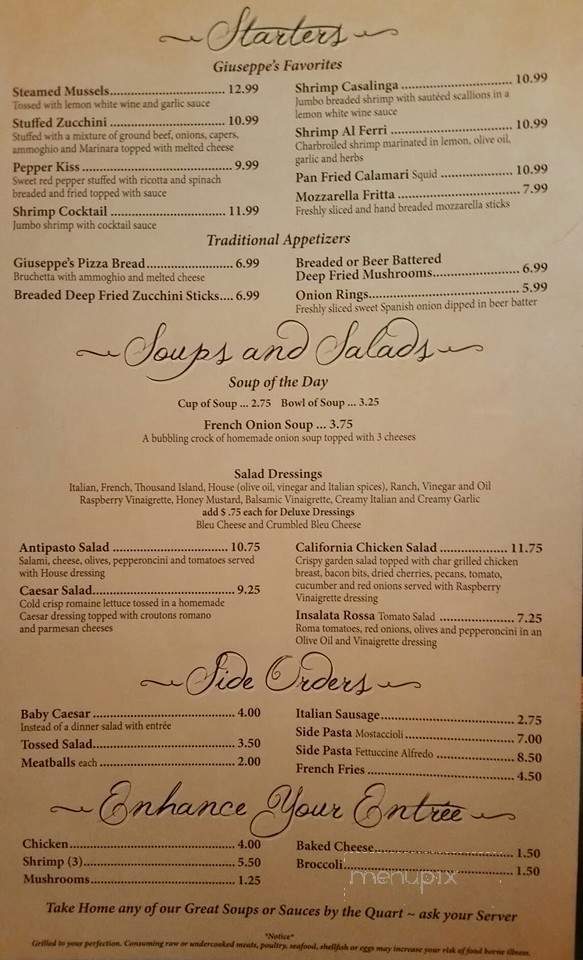 Starters
Giuseppe's Favorites
Steamed Mussels.................................. 12.99
Tossed with lemon white wine and garlic sauce
Stuffed Zucchini .................................. 10.99
Stuffed with a mixture of ground beef, onions, capers,
ammoghio and Marinara topped with melted cheese
Pepper Kiss .......................................... 9.99
Sweet red pepper stuffed with ricotta and spinach
breaded and fried topped with sauce
Shrimp Cocktail .................................. 11.99
Jumbo shrimp with cocktail sauce
Shrimp Casalinga ............................... 10.99
Jumbo breaded shrimp with sautéed scallions in a
lemon white wine sauce
Shrimp Al Ferri .................................. 10.99
Charbroiled shrimp marinated in lemon, olive oil,
garlic and herbs
Pan Fried Calamari Squid .................... 10.99
Mozzarella Fritta ................................. 7.99
Freshly sliced and hand breaded mozzarella sticks
Traditional Appetizers
Giuseppe's Pizza Bread........................ 6.99
Bruchetta with ammoghio and melted cheese
Breaded Deep Fried Zucchini Sticks.... 6.99
Breaded or Beer Battered
Deep Fried Mushrooms........................ 6.99
Onion Rings.......................................... 5.99
Freshly sliced sweet Spanish onion dipped in beer batter
Soups and Salads
Soup of the Day
Cup of Soup ... 2.75 Bowl of Soup ... 3.25
French Onion Soup ... 3.75
A bubbling crock of homemade onion soup topped with 3 cheeses
Salad Dressings
Italian, French, Thousand Island, House (olive oil, vinegar and Italian spices), Ranch, Vinegar and Oil
Raspberry Vinaigrette, Honey Mustard, Balsamic Vinaigrette, Creamy Italian and Creamy Garlic
add $ .75 each for Deluxe Dressings
Bleu Cheese and Crumbled Bleu Cheese
Antipasto Salad ................................. 10.75
Salami, cheese, olives, pepperoncini and tomatoes served
with House dressing
Caesar Salad......................................... 9.25
Cold crisp romaine lettuce tossed in a homemade
Caesar dressing topped with croutons romano
and parmesan cheeses
California Chicken Salad .................... 11.75
Crispy garden salad topped with char grilled chicken
breast, bacon bits, dried cherries, pecans, tomato,
cucumber and red onions served with Raspberry
Vinaigrette dressing
Insalata Rossa Tomato Salad ..................... 7.25
Roma tomatoes, red onions, olives and pepperoncini in an
Olive Oil and Vinaigrette dressing
Side Orders
Baby Caesar ......................................... 4.00
Instead of a dinner salad with entrée
Tossed Salad......................................... 3.50
Meatballs each ....................................... 2.00
Italian Sausage...................................... 2.75
Side Pasta Mostaccioli ................................ 7.00
Side Pasta Fettuccine Alfredo ....................... 8.50
French Fries ......................................... 4.50
Enhance Your Entrée
Chicken................................................ 4.00
Shrimp (3)............................................ 5.50
Mushrooms.......................................... 1.25
Baked Cheese........................................ 1.50
Broccoli................................................ 1.50
menupix
Take Home any of our Great Soups or Sauces by the Quart ~ ask your Server
*Notice*
Grilled to your perfection. Consuming raw or undercooked meats, poultry, seafood, shellfish or eggs may increase your risk of food borne illness.